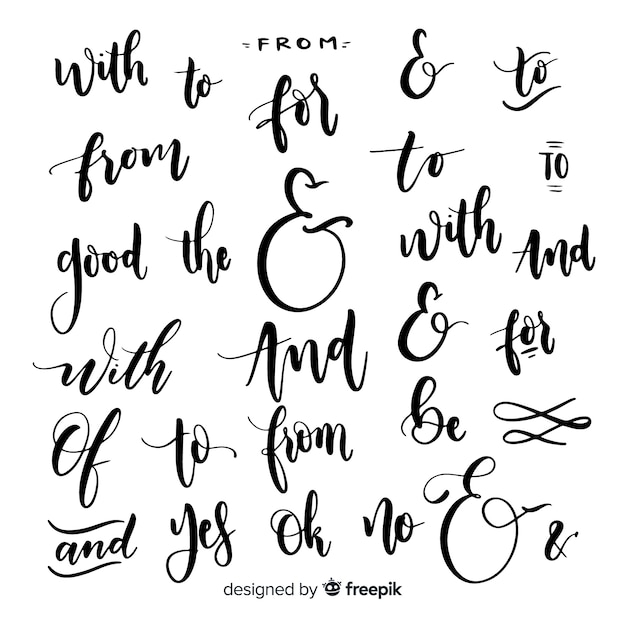 with to - FROM - & to
for
from to TO
good the & with And
with And & for
Of to from be
and yes ok no & &
designed by freepik